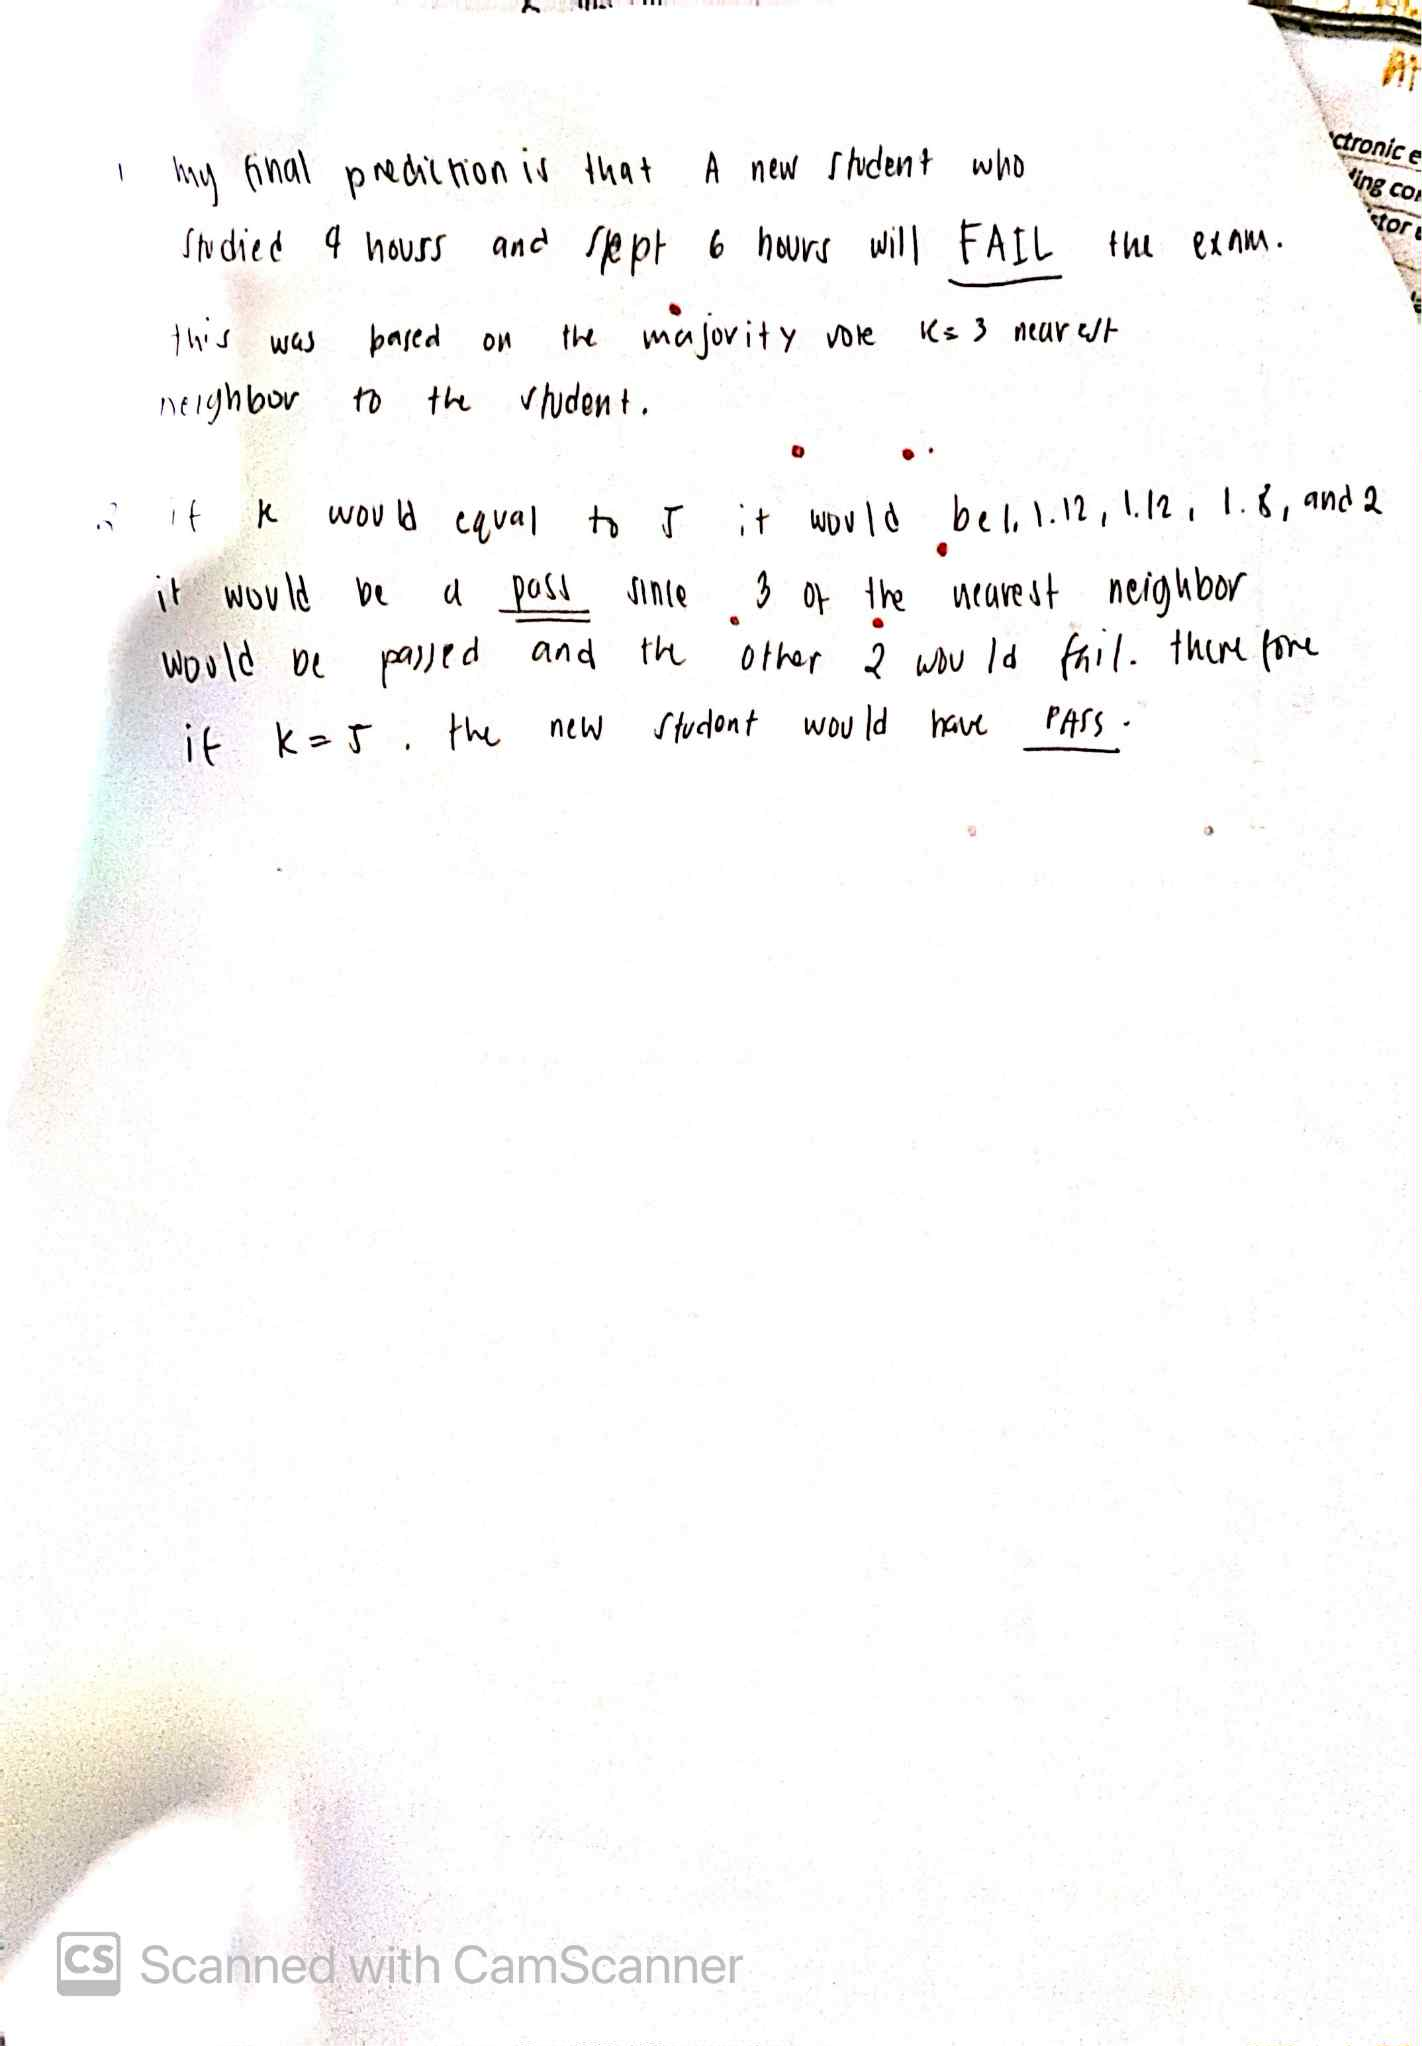 1 my final prediction is that A new student who
studied 4 hours and slept 6 hours will FAIL the exam.
this was based on the majority vote K= 3 nearest
neighbor to the student.
2 if k would equal to 5 it would be 1, 1.12, 1.12, 1.8, and 2
it would be a pass since 3 of the nearest neighbor
would be passed and the other 2 would fail. therefore
if k = 5, the new student would have PASS.
ctronic e
ding co
stor
CS Scanned with CamScanner